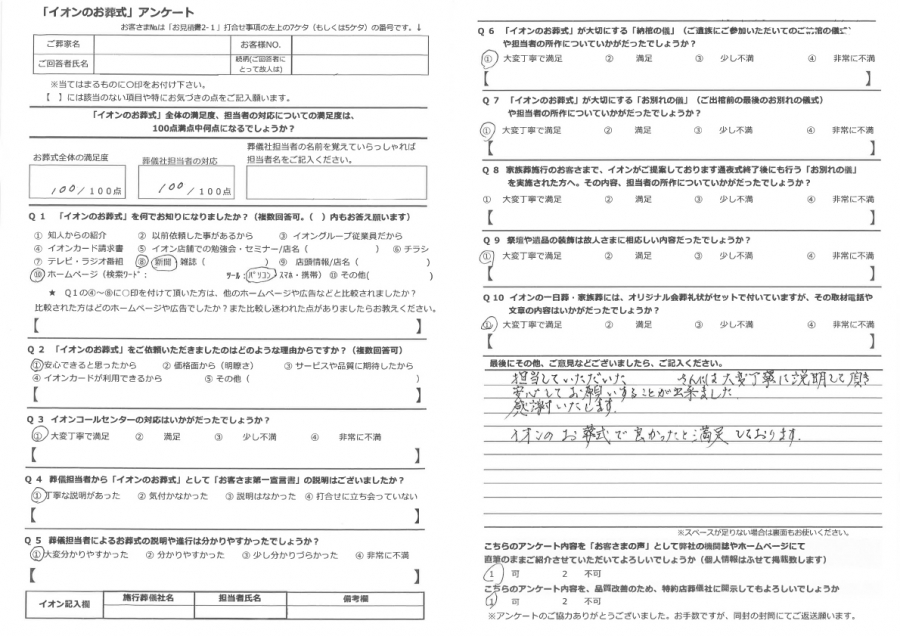 「イオンのお葬式」アンケート
お客さま№は「お見積書2-1」打合せ事項の左上の7ケタ（もしくは5ケタ）の番号です。↓
ご葬家名
お客様NO.
ご回答者氏名
続柄(ご回答者にとって故人は)
※当てはまるものに〇印をお付け下さい。
【　】には該当のない項目や特にお気づきの点をご記入願います。
「イオンのお葬式」全体の満足度、担当者の対応についての満足度は、
100点満点中何点になるでしょうか？
お葬式全体の満足度
100/100点
葬儀社担当者の対応
100/100点
葬儀社担当者の名前を覚えていらっしゃれば
担当者名をご記入ください。
Q 1　「イオンのお葬式」を何でお知りになりましたか？（複数回答可。（　）内もお答え願います）
① 知人からの紹介　② 以前依頼した事があるから　③ イオングループ従業員だから
④ イオンカード請求書　⑤ イオン店舗での勉強会・セミナー/店名（　）　⑥ チラシ
⑦ テレビ・ラジオ番組　⑧ 新聞・雑誌（　）　⑨ 店頭情報/店名（　）
⑩ ホームページ（検索ﾜｰﾄﾞ：　ﾂｰﾙ：パソコン・ｽﾏﾎ・携帯）⑪ その他(　)
★　Q1の④～⑥に〇印を付けて頂いた方は、他のホームページや広告などと比較されましたか？
比較された方はどのホームページや広告でしたか？また比較し迷われた点がありましたらお教えください。
【　】
Q 2　「イオンのお葬式」をご依頼いただきましたのはどのような理由からですか？（複数回答可）
①安心できると思ったから　② 価格面から（明瞭さ）　③ サービスや品質に期待したから
④ イオンカードが利用できるから　⑤ その他（　）
【　】
Q 3　イオンコールセンターの対応はいかがだったでしょうか？
① 大変丁寧で満足　②　満足　③　少し不満　④　非常に不満
【　】
Q 4　葬儀担当者から「イオンのお葬式」として「お客さま第一宣言書」の説明はございましたか？
①丁寧な説明があった　② 気付かなかった　③ 説明はなかった　④ 打合せに立ち会っていない
【　】
Q 5　葬儀担当者によるお葬式の説明や進行は分かりやすかったでしょうか？
①大変分かりやすかった　② 分かりやすかった　③ 少し分かりづらかった　④ 非常に不満
【　】
イオン記入欄　施行葬儀社名　担当者氏名　備考欄
Q 6　「イオンのお葬式」が大切にする「納棺の儀」（ご遺族にご参加いただいてのご納棺の儀式）
や担当者の所作についていかがだったでしょうか？
① 大変丁寧で満足　②　満足　③　少し不満　④　非常に不満
【　】
Q 7　「イオンのお葬式」が大切にする「お別れの儀」（ご出棺前の最後のお別れの儀式）
や担当者の所作についていかがだったでしょうか？
① 大変丁寧で満足　②　満足　③　少し不満　④　非常に不満
【　】
Q 8　家族葬施行のお客さまで、イオンがご提案しております通夜式終了後にも行う「お別れの儀」
を実施された方へ。その内容、担当者の所作についていかがだったでしょうか？
① 大変丁寧で満足　②　満足　③　少し不満　④　非常に不満
【　】
Q 9　祭壇や遺品の装飾は故人さまに相応しい内容だったでしょうか？
① 大変丁寧で満足　②　満足　③　少し不満　④　非常に不満
【　】
Q 10　イオンの一日葬・家族葬には、オリジナル会葬礼状がセットで付いていますが、その取材電話や
文章の内容はいかがだったでしょうか？
① 大変丁寧で満足　②　満足　③　少し不満　④　非常に不満
【　】
最後にその他、ご意見などございましたら、ご記入ください。
担当していただいた　さんには大変丁寧に説明して頂き
安心してお願いすることが出来ました
感謝いたします.
イオンのお葬式で良かったと満足しております.
※スペースが足りない場合は裏面もお使いください。
こちらのアンケート内容を「お客さまの声」として弊社の機関誌やホームページにて
直筆のままご紹介させていただいてよろしいでしょうか（個人情報はふせて掲載致します）
1　可　2　不可
こちらのアンケート内容を、品質改善のため、特約店葬儀社に開示してもよろしいでしょうか
1　可　2　不可
※アンケートのご協力ありがとうございました。お手数ですが、同封の封筒にてご返送願います。